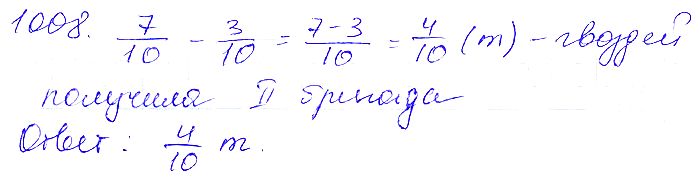 1008. 7/10 - 3/10 = (7-3)/10 = 4/10 (т) - гвоздей
получила II бригада
Ответ: 4/10 т.